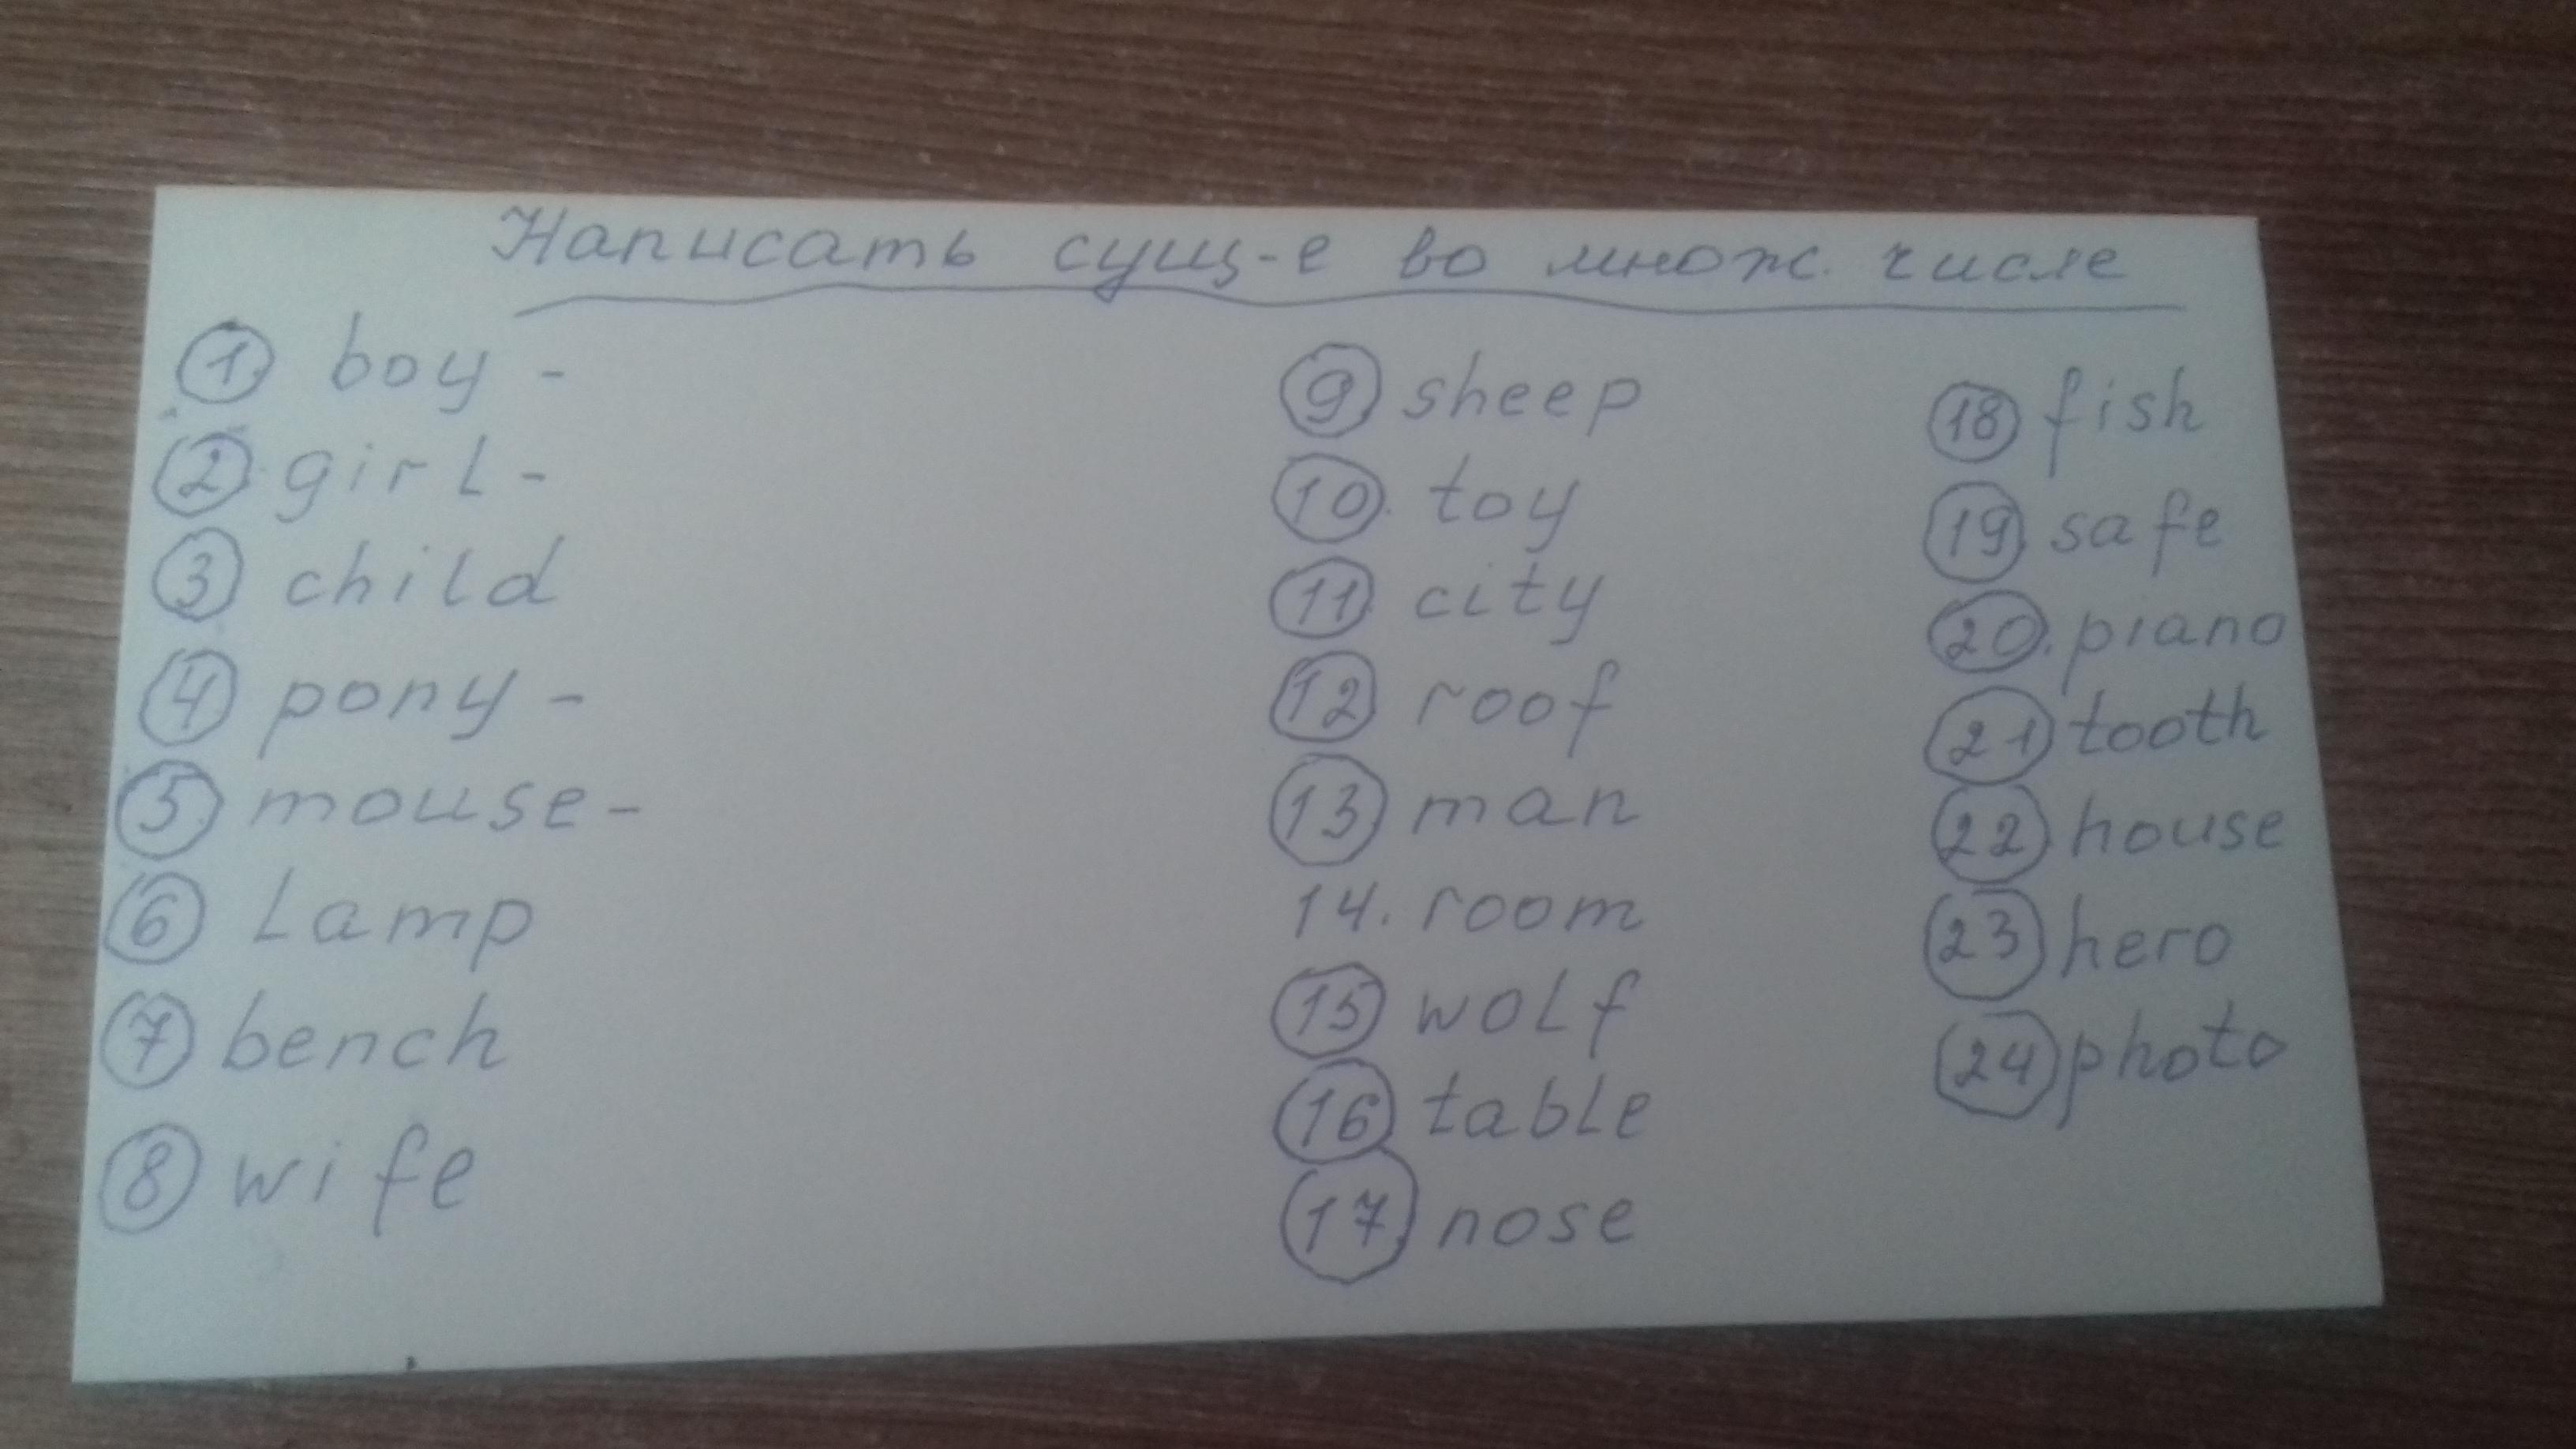 Написать сущ-е во множ. числе
1. boy -
2. girl -
3. child
4. pony -
5. mouse -
6. Lamp
7. bench
8. wife
9. sheep
10. toy
11. city
12. roof
13. man
14. room
15. wolf
16. table
17. nose
18. fish
19. safe
20. piano
21. tooth
22. house
23. hero
24. photo